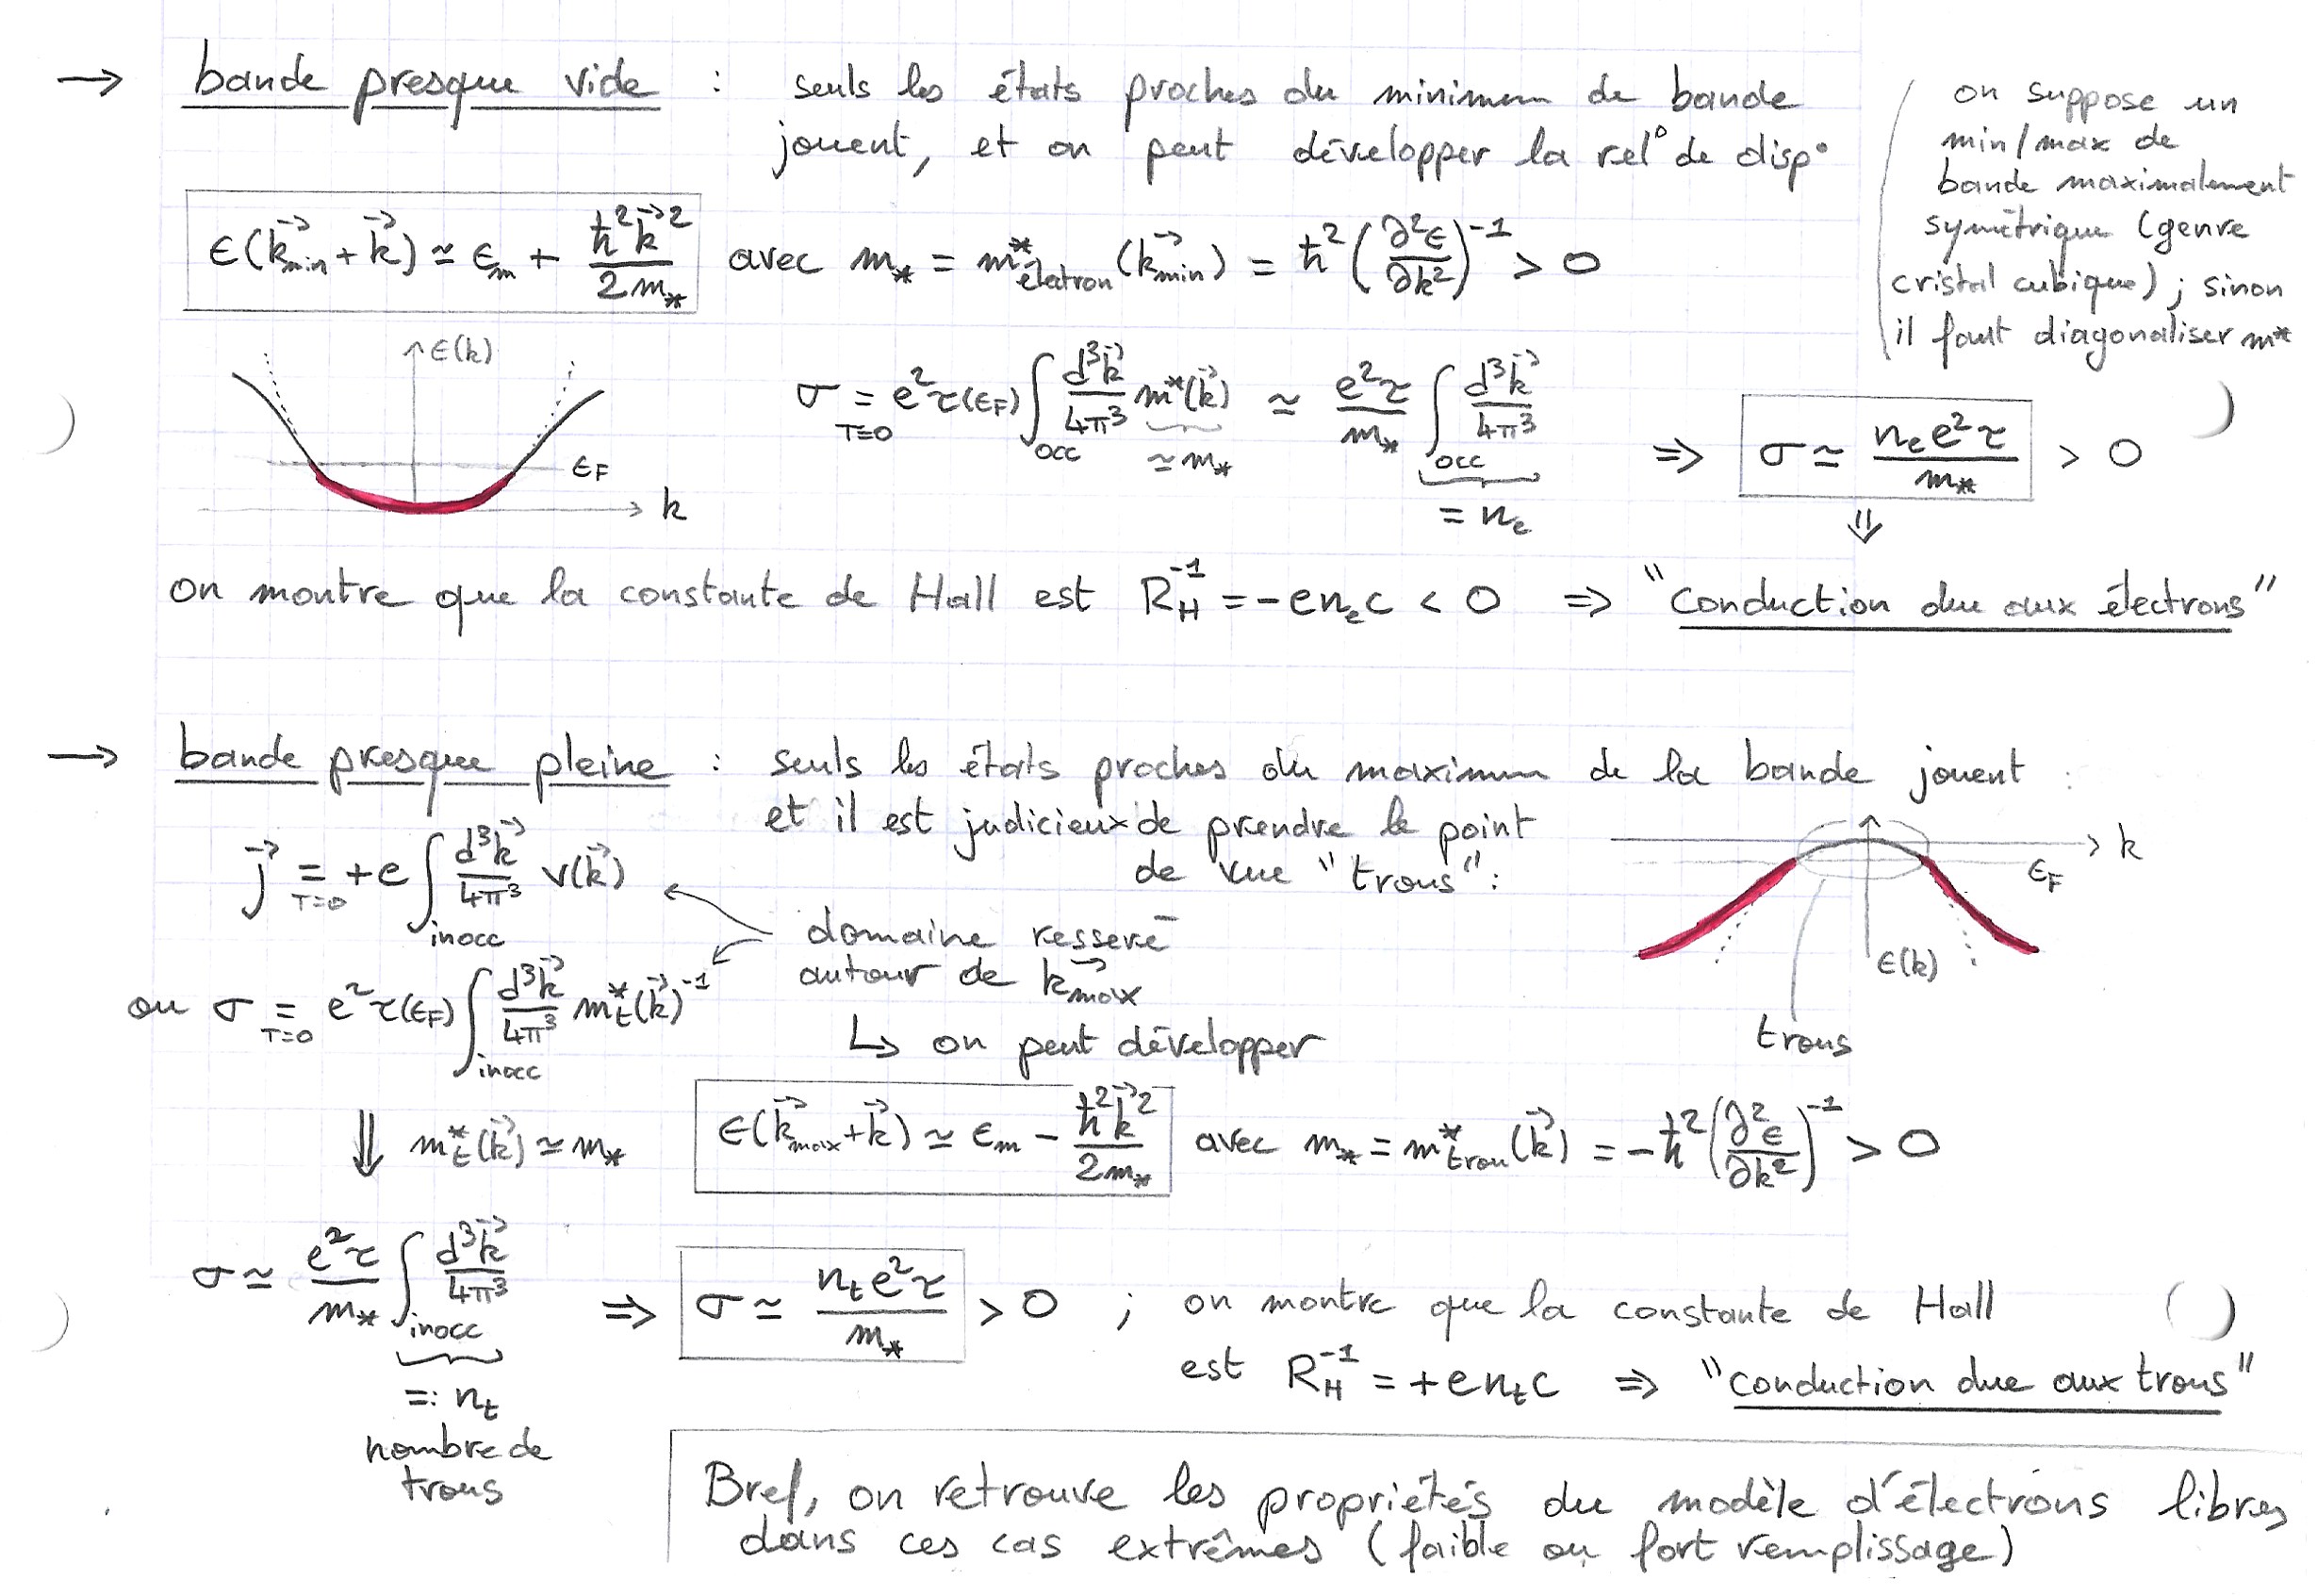 → bande presque vide : seuls les états proches du minimum de bande
jouent, et on peut développer la rel° de disp°
(on suppose un
min/max de
bande maximalement
symétrique (genre
cristal cubique) ; sinon
il faut diagonaliser m*
ϵ(k⃗min + k⃗) ≃ ϵm + ħ²k⃗²/2m* avec m* = m*électron(k⃗min) = ħ²(∂²ϵ/∂k²)⁻¹ > 0
ϵ(k)
ϵF
k
σ =(T=0) e²τ(ϵF) ∫occ d³k⃗/4π³ m*(k⃗) [≃ m*] ≃ e²τ/m* ∫occ d³k⃗/4π³ [= ne] ⇒ σ ≃ ne e²τ/m* > 0
⇓
on montre que la constante de Hall est RH⁻¹ = -e ne c < 0 ⇒ "conduction due aux électrons"
→ bande presque pleine : seuls les états proches du maximum de la bande jouent
et il est judicieux de prendre le point
de vue "trous" :
k
ϵF
ϵ(k)
trous
j⃗ =(T=0) +e ∫inocc d³k⃗/4π³ v(k⃗)
domaine resseré
autour de k⃗max
ou σ =(T=0) e²τ(ϵF) ∫inocc d³k⃗/4π³ m*t(k⃗)⁻¹
↳ on peut développer
⇓ m*t(k⃗) ≃ m*
ϵ(k⃗max + k⃗) ≃ ϵm - ħ²k⃗²/2m* avec m* = m*trou(k⃗) = -ħ²(∂²ϵ/∂k²)⁻¹ > 0
σ ≃ e²τ/m* ∫inocc d³k⃗/4π³ ⇒ σ ≃ nt e²τ/m* > 0 ; on montre que la constante de Hall
est RH⁻¹ = +e nt c ⇒ "conduction due aux trous"
=: nt
nombre de
trous
Bref, on retrouve les propriétés du modèle d'électrons libres
dans ces cas extrêmes (faible ou fort remplissage)